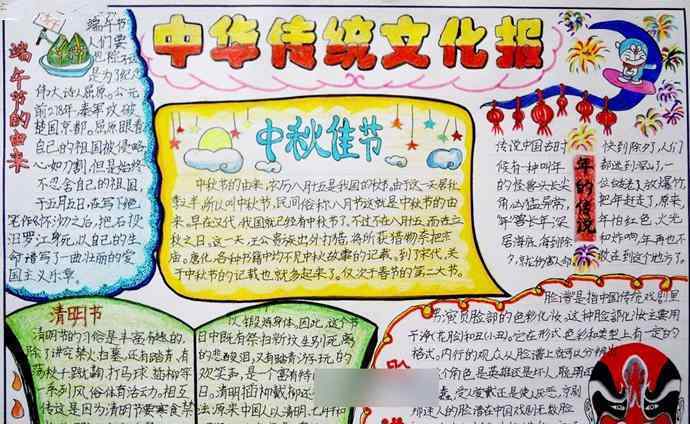 中华传统文化报
端午节的由来
端午节
人们要
是为了纪念
伟大诗人屈原。公元
前278年，秦军攻破
楚国京都。屈原眼看
自己的祖国被侵略
心如刀割，但是始终
不忍舍自己的祖国，
于五月五日，在写下绝
笔作怀沙之后，抱石投
汨罗江身死，以自己的生
命谱写了一曲壮丽的爱
国主义乐章。
中秋佳节
中秋节的由来，农历八月十五是我国的中秋节，由于这一天居秋
季正半，所以叫中秋节。民间俗称八月节这就是中秋节的由
来。早在汉代，我国就已经有中秋节了，不过不在八月十五，而是立
秋之日，这一天，王公贵族出外打猎，将所获猎物祭把宗
庙。唐化，各种书籍中均不见中秋故事的记载，到了宋代，关
于中秋节的记载也就多起来了。仅次于春节的第二大节。
年的传说
传说中国古时
候有一种叫年
的怪兽头长尖
角，凶猛异常，
年兽长年深
居海底，每到除
夕，爬上岸来伤害人命
快到除夕，人们
都逃到深山，一
位
把年赶走了，原来，
年怕红色，火光
和炸响，年再也不
敢逃到这个地方了。
清明节
清明节的习俗是丰富有趣的，
除了讲究禁火扫墓，还有踏青，有
荡秋千踢蹴鞠打马球插柳等
一系列风俗体育活动。相互
传这是因为清明节要寒食禁
以锻炼身体。因此，这个节
日中既有祭扫新坟生别死离
的悲酸泪，又有踏青游玩的
欢笑声，是一个富有特
日。清明插柳戴柳还有
法原来中国人以清明七月半和
脸谱是指中国传统戏剧里
男演员脸部的色彩化妆，这种脸部化妆主要用
于净(花脸)和丑(小丑)。它在形式色彩和类型上有一定的
格式，内行的观众从脸谱上就可以分辨
个角色是英雄还是坏人，聪明还
爱人爱戴还是使人厌恶，京剧
那迷人的脸谱在中国戏剧无数脸
脸